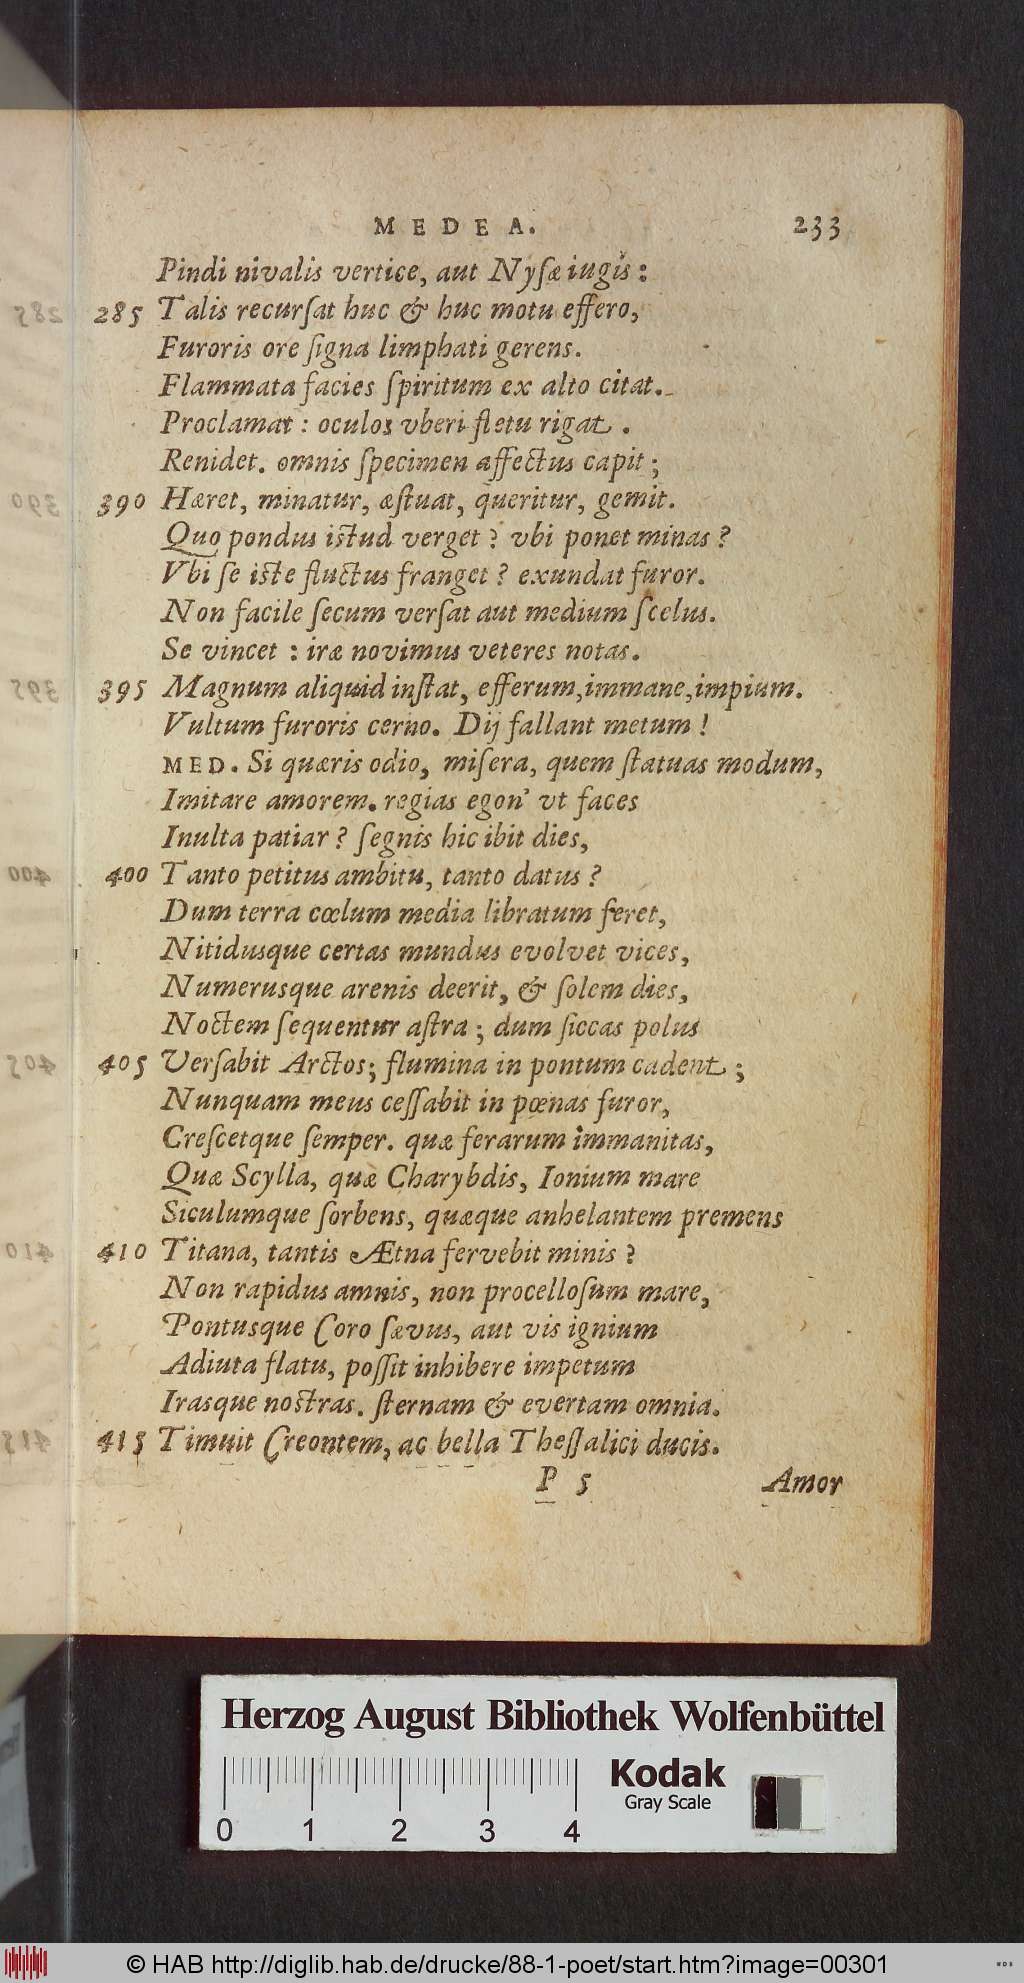 MEDEA. 233
Pindi nivalis vertice, aut Nysæ iugis:
285 Talis recursat huc & huc motu effero,
Furoris ore signa limphati gerens.
Flammata facies spiritum ex alto citat.
Proclamat: oculos vberi fletu rigat.
Renidet. omnis specimen affectus capit;
390 Hæret, minatur, æstuat, queritur, gemit.
Quo pondus istud verget? vbi ponet minas?
Vbi se iste fluctus franget? exundat furor.
Non facile secum versat aut medium scelus.
Se vincet: iræ novimus veteres notas.
395 Magnum aliquid instat, efferum, immane, impium.
Vultum furoris cerno. Dij fallant metum!
MED. Si quæris odio, misera, quem statuas modum,
Imitare amorem. regias egon' vt faces
Inulta patiar? segnis hic ibit dies,
400 Tanto petitus ambitu, tanto datus?
Dum terra cœlum media libratum feret,
Nitidusque certas mundus evolvet vices,
Numerusque arenis deerit, & solem dies,
Noctem sequentur astra; dum siccas polus
405 Versabit Arctos; flumina in pontum cadent;
Nunquam meus cessabit in pœnas furor,
Crescetque semper. quæ ferarum immanitas,
Quæ Scylla, quæ Charybdis, Ionium mare
Siculumque sorbens, quæque anhelantem premens
410 Titana, tantis Ætna fervebit minis?
Non rapidus amnis, non procellosum mare,
Pontusque Coro sævus, aut vis ignium
Adiuta flatu, possit inhibere impetum
Irasque nostras. sternam & evertam omnia.
415 Timuit Creontem, ac bella Thessalici ducis.
P 5 Amor
Herzog August Bibliothek Wolfenbüttel
Kodak
Gray Scale
0 1 2 3 4
© HAB http://diglib.hab.de/drucke/88-1-poet/start.htm?image=00301